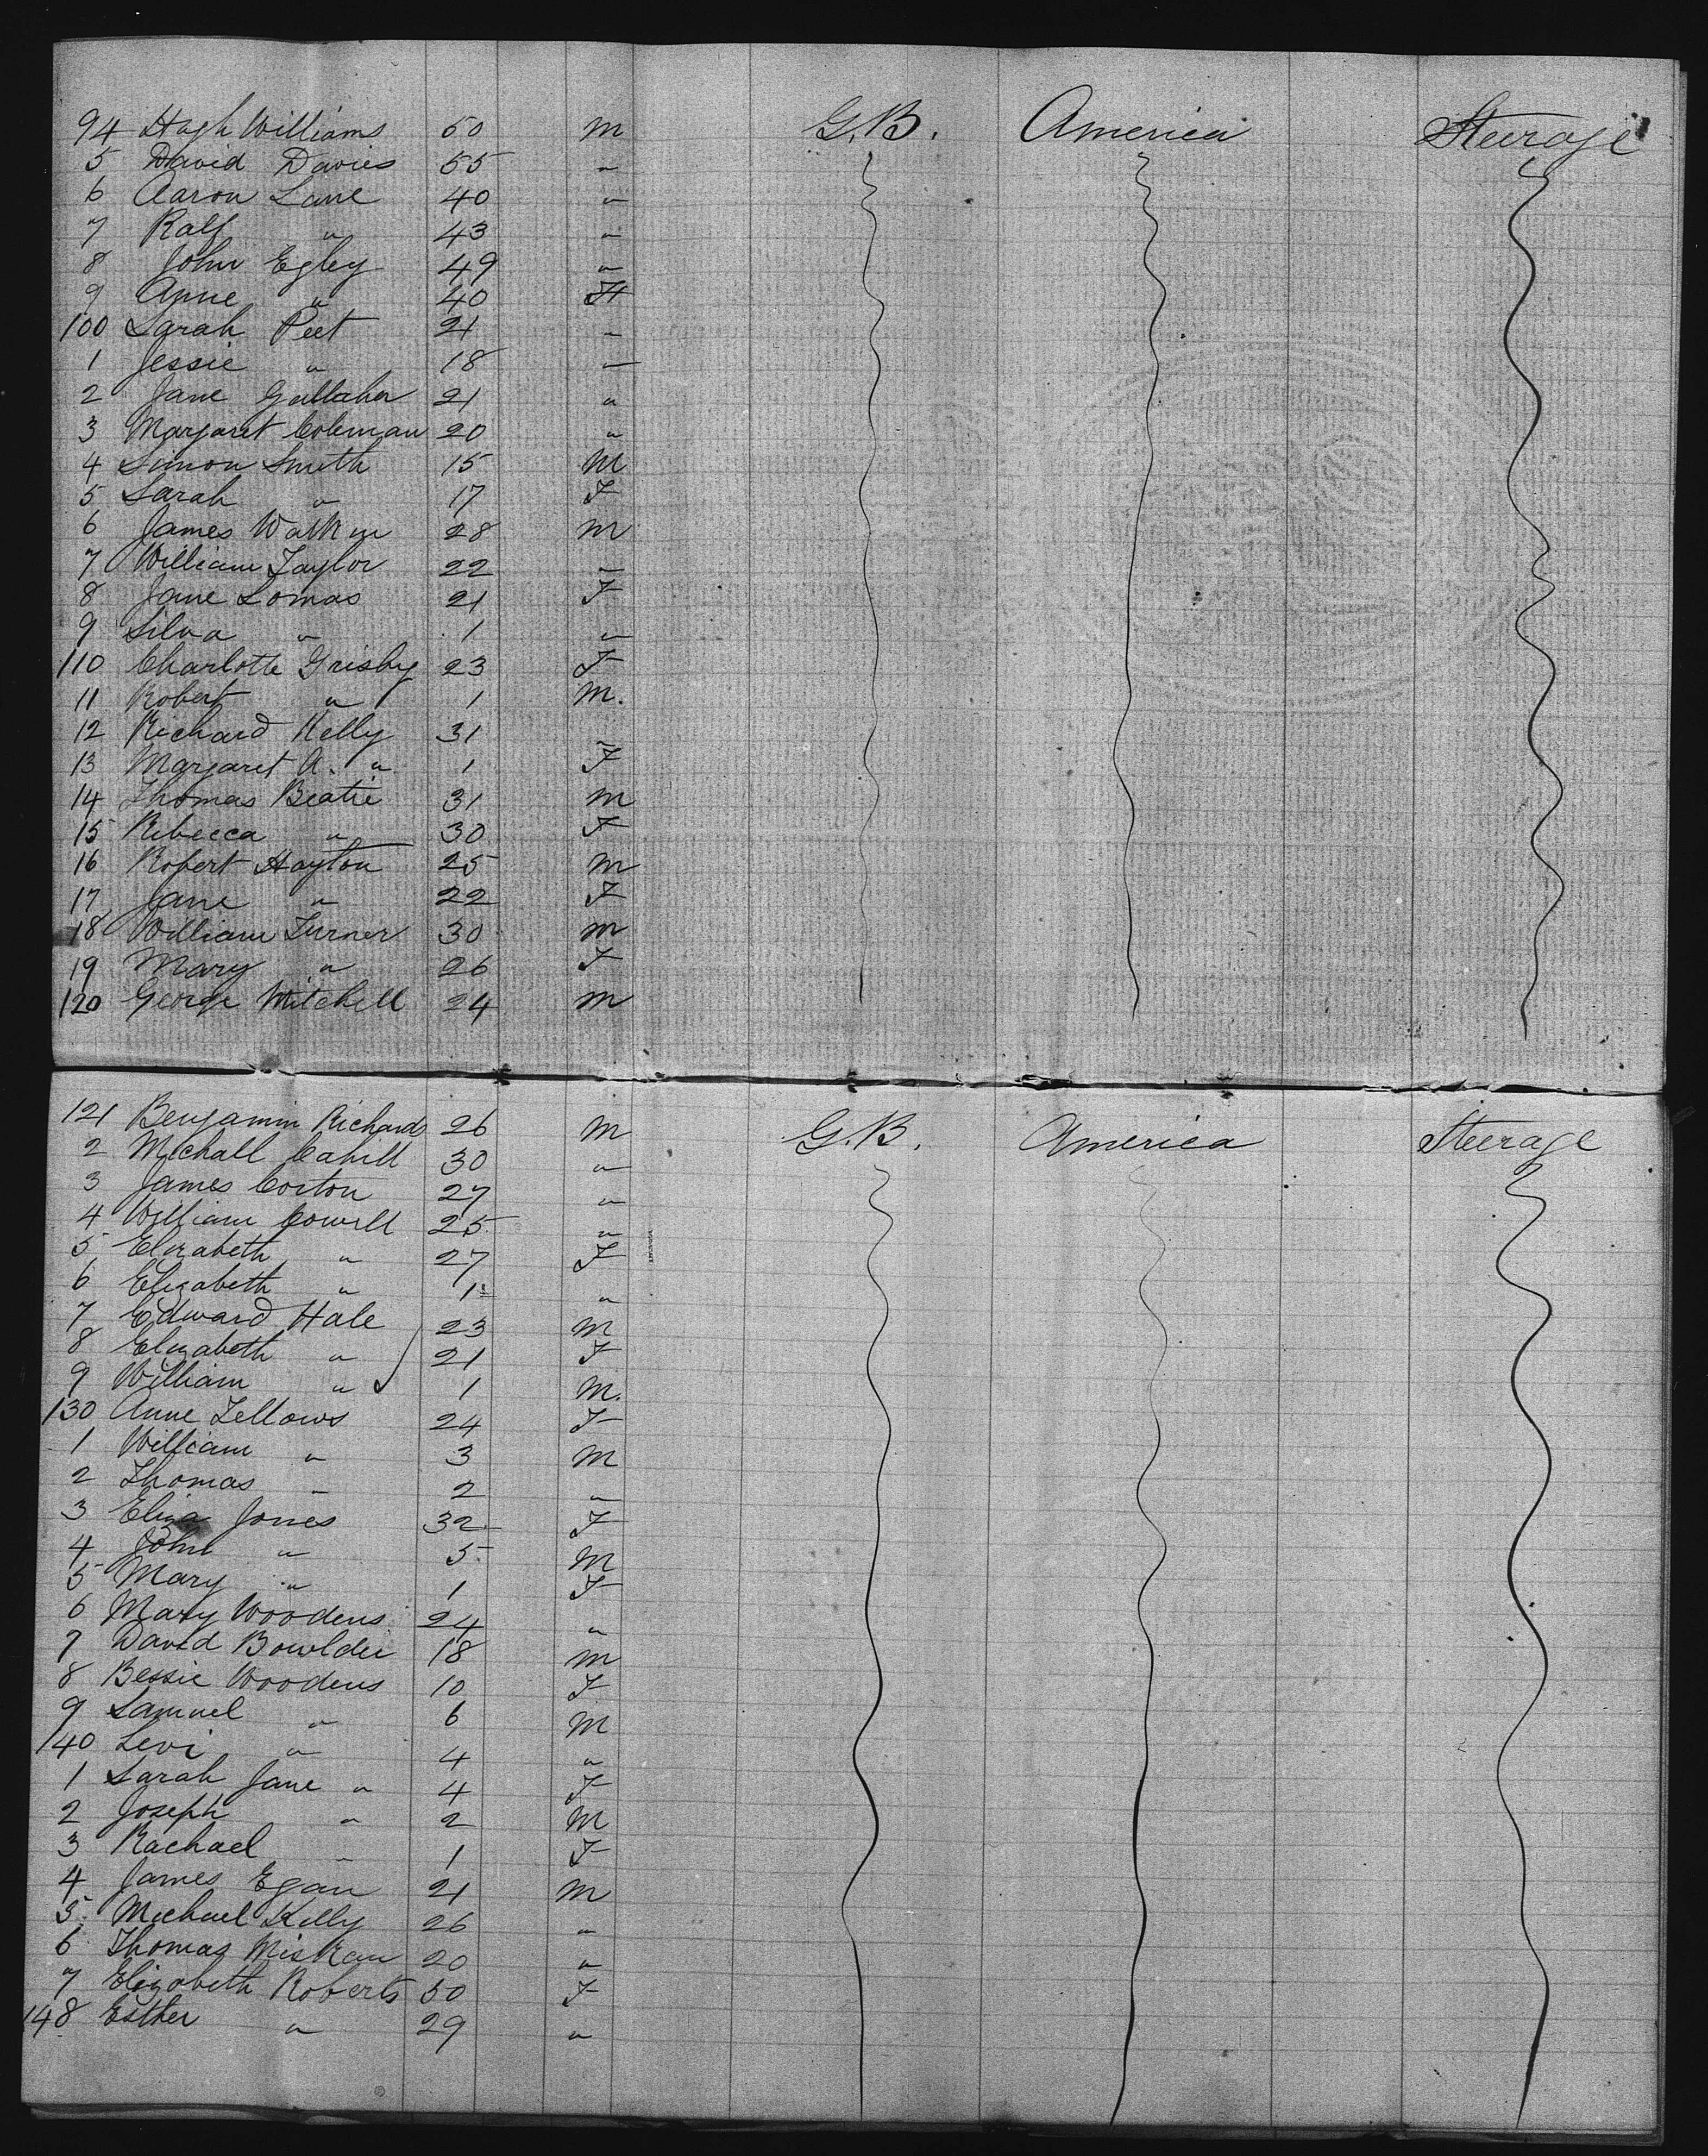 94 Hugh Williams 50 m G.B. America Steerage
5 David Davies 55 "
6 Aaron Lane 40 "
7 Ralf " 43 "
8 John Egley 49 "
9 Anne " 40 F
100 Sarah Peet 21 "
1 Jessie " 18 "
2 Jane Gallaher 21 "
3 Margaret Coleman 20 "
4 Simon Smith 15 M
5 Sarah " 17 F
6 James 28 m
7 William Taylor 22 "
8 Jane Lomas 21 F
9 Silva " 1 "
110 Charlotte Grisby 23 F
11 Robert " 1 M.
12 Richard Kelly 31 "
13 Margaret A. " 1 F
14 Thomas Beatie 31 m
15 Rebecca " 30 F
16 Robert Hayton 25 m
17 Jane " 22 F
18 William Turner 30 m
19 Mary " 26 F
120 George Mitchell 24 m
121 Benjamin Richards 26 m G.B. America Steerage
2 Michall Cahill 30 "
3 James Corton 27 "
4 William Cowell 25 "
5 Elizabeth " 27 F
6 Elizabeth " 1 "
7 Edward Hale 23 m
8 Elizabeth " 21 F
9 William " 1 M.
130 Anne Fellows 24 F
1 William " 3 M
2 Thomas " 2 "
3 Eliza Jones 32 F
4 John " 5 M
5 Mary " 1 F
6 Mary Woodens 24 "
7 David 18 m
8 Bessie Woodens 10 F
9 Samuel " 6 M
140 Levi " 4 "
1 Sarah Jane " 4 F
2 Joseph " 2 M
3 Rachael " 1 F
4 James Egan 21 m
5 Michael Kelly 26 "
6 Thomas 20 "
7 Elizabeth Roberts 50 F
148 Esther " 29 "